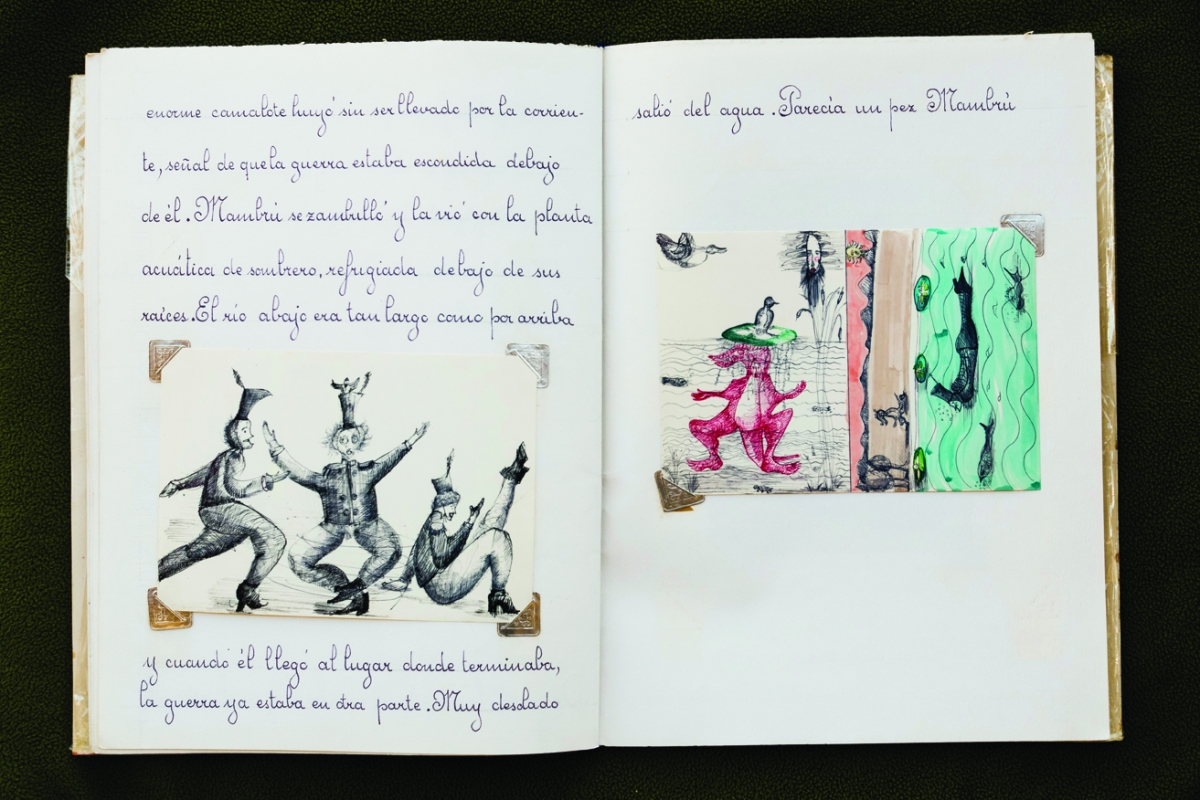 enorme camalote huyó sin ser llevado por la corrien-
te, señal de que la guerra estaba escondida debajo
de él. Mambrú se zambulló y la vió con la planta
acuática de sombrero, refugiada debajo de sus
raíces. El río abajo era tan largo como por arriba
y cuando él llegó al lugar donde terminaba,
la guerra ya estaba en otra parte. Muy desolado
salió del agua. Parecía un pez Mambrú